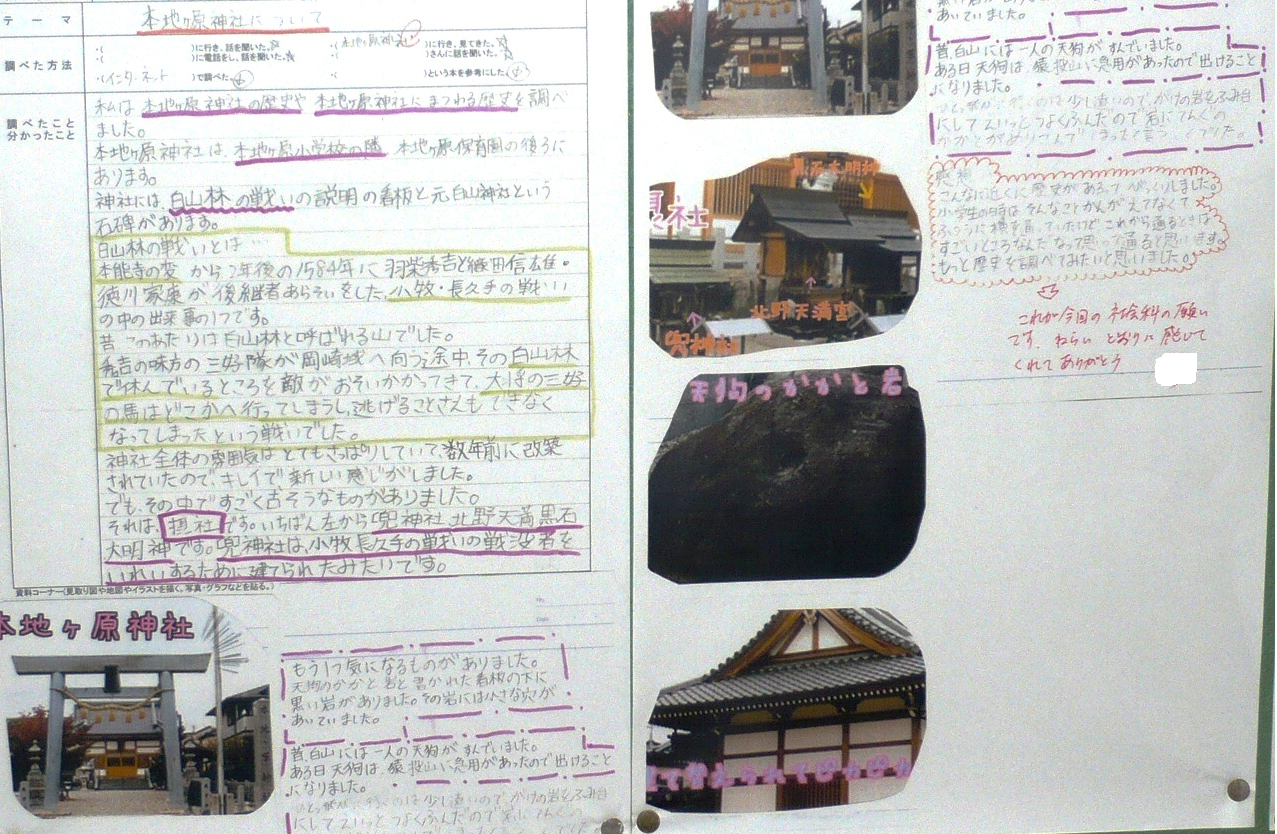 テーマ
本地ヶ原神社について
調べた方法
・( )に行き、話を聞いた。
・( )に電話をし、話を聞いた。
・(インターネット )で調べた
(本地ヶ原神社 )に行き、見てきた。
( )さんに話を聞いた。
( )という本を参考にした
調べたこと
分かったこと
私は 本地ヶ原神社の歴史や 本地ヶ原神社にまつわる歴史を調べ
ました。
本地ヶ原神社は、本地ヶ原小学校の隣 本地ヶ原保育園の後ろに
あります。
神社には、白山林の戦いの説明の看板と元白山神社という
石碑があります。
白山林の戦いとは…
本能寺の変 から2年後の1584年に 羽柴秀吉と織田信雄・
徳川家康が 後継者あらそいをした、小牧・長久手の戦い
の中の出来事の1つです。
昔 このあたりは白山林と呼ばれる山でした。
秀吉の味方の三好隊が岡崎城へ向う途中、その白山林
で休んでいるところを敵がおそいかかってきて、大将の三好
の馬はどこかへ行ってしまうし、逃げることさえもできなく
なってしまったという戦いでした。
神社全体の雰囲気はとてもさっぱりしていて、数年前に改築
されていたので、キレイで新しい感じがしました。
でも、その中ですごく古そうなものがありました。
それは、摂社です。いちばん左から兜神社 北野天満 黒石
大明神です。兜神社は、小牧長久手の戦いの戦没者を
いれいするために建てられたみたいです。
資料コーナー(見取り図や地図やイラストを描く、写真・グラフなどを貼る。)
本地ヶ原神社
もう1つ気になるものがありました。
天狗のかかと岩と書かれた看板の下に
黒い岩がありました。その岩には小さな穴が
あいていました。
昔、白山には一人の天狗がすんでいました。
ある日 天狗は、猿投山に急用があったので出けること
になりました。
は少し遠いので、がけの岩をふみ台
にしてえいっとつよくふんだので岩に
あいていました。
昔、白山には一人の天狗がすんでいました。
ある日 天狗は、猿投山に急用があったので出けること
になりました。
は少し遠いので、がけの岩をふみ台
にしてえいっとつよくふんだので岩にてんぐの
かかとが
北野天満宮
兜神社
天狗のかかと岩
感想
こんなに近くに歴史があるってびっくりしました。
小学生の時はそんなことかんがえてなくて
ふつうに横を通っていたけど これから通るときは
すごいところなんだなって思って通ると思います。
もっと歴史を調べてみたいと思いました。
これが今回の社会科の願い
です。ねらいどおりに感じて
くれてありがとう